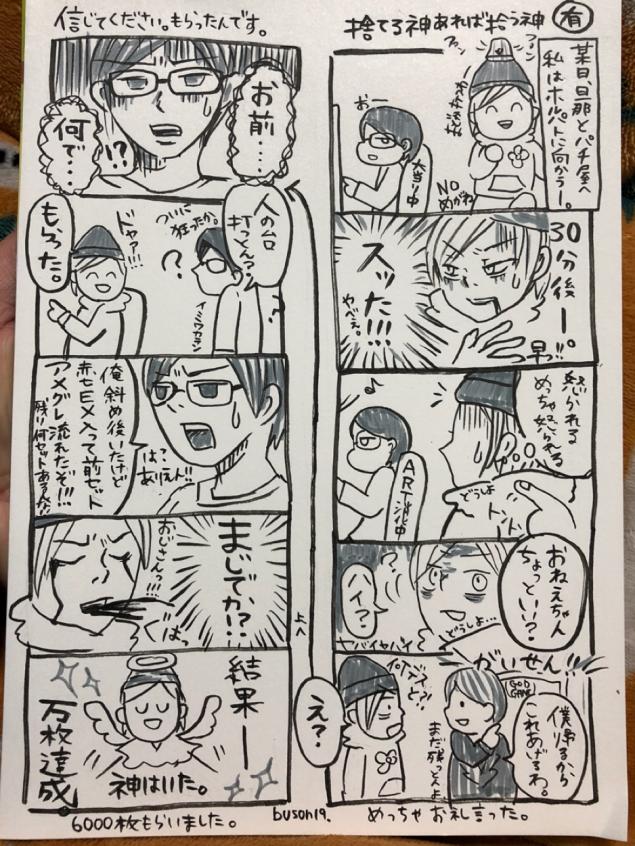 捨てる神あれば拾う神
有
某日、旦那とパチ屋へ
私はホルパトに向かうー。
ファン
ファン
おー
大当り中
NO
めがね
30分後ー。
早!!
スッた!!!
やべぇ。
怒られる
めちゃ怒られる
どうしよ
トントン
ART消化中
おねえちゃん
ちょっといい?
ハイ?
どうしよ…
ヤバイヤバイ
がいせん!!
GOD
GAME
僕帰るから
これあげるわ。
まだ残っとんよ
え?
めっちゃお礼言った。
信じてください。もらったんです。
お前…
何で…
!?
人の台
打っとん?
ついに
狂ったか。
?
イミワカラン
ドヤァ!!!
もらった。
俺斜め後いたけど
赤七EX入って前セット
アメグレ流れたぞ!!!
残り何セットあるんな!
は?
ありえん!!
まじでか!?
おじさんっ!!!
ぐはっ
上へ
結果ー
万枚達成
神はいた。
6000枚もらいました。
buson19.